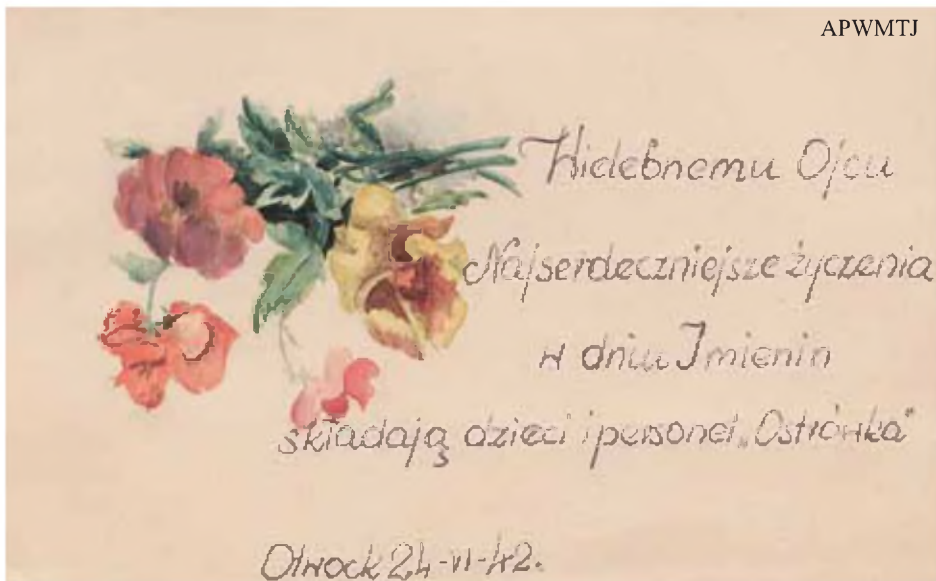 APWMTJ
Wielebnemu Ojcu
Najserdeczniejsze życzenia
w dniu Imienin
składają dzieci i personel „Ostrówka"
Otwock 24-VI-42.